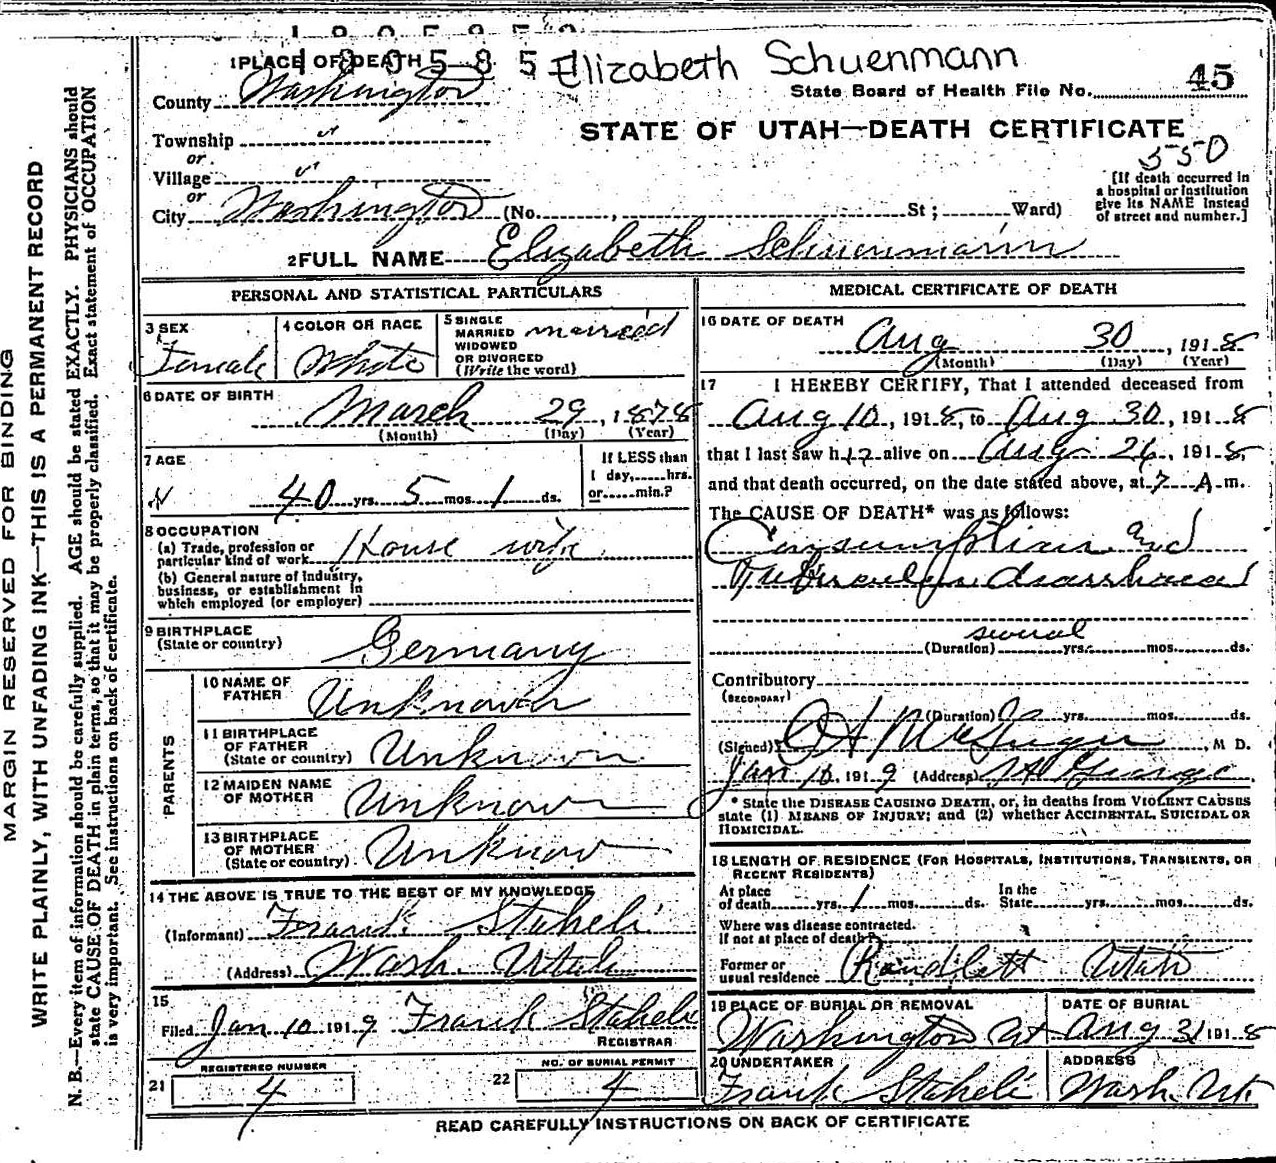 180585
1 PLACE OF DEATH 180585 Elizabeth Schuenmann
County Washington
State Board of Health File No. 45
Township "
or
STATE OF UTAH—DEATH CERTIFICATE
550
Village "
or
City Washington (No. , St ; Ward)
[If death occurred in
a hospital or institution
give its NAME instead
of street and number.]
2 FULL NAME Elizabeth Schuenmann
PERSONAL AND STATISTICAL PARTICULARS
3 SEX
Female
4 COLOR OR RACE
White
5 SINGLE
MARRIED
WIDOWED
OR DIVORCED
(Write the word)
married
6 DATE OF BIRTH
March 29, 1878
(Month) (Day) (Year)
7 AGE
40 yrs. 5 mos. 1 ds.
If LESS than
1 day, hrs.
or min.?
8 OCCUPATION
(a) Trade, profession or
particular kind of work House wife
(b) General nature of Industry,
business, or establishment in
which employed (or employer)
9 BIRTHPLACE
(State or country) Germany
PARENTS
10 NAME OF
FATHER Unknown
11 BIRTHPLACE
OF FATHER
(State or country) Unknown
12 MAIDEN NAME
OF MOTHER Unknown
13 BIRTHPLACE
OF MOTHER
(State or country) Unknow
14 THE ABOVE IS TRUE TO THE BEST OF MY KNOWLEDGE
(Informant) Frank Staheli
(Address) Wash. Utah
15
Filed Jan 10 1919 Frank Staheli
REGISTRAR
21 REGISTERED NUMBER
4
22 NO. OF BURIAL PERMIT
4
MEDICAL CERTIFICATE OF DEATH
16 DATE OF DEATH
Aug 30, 1918
(Month) (Day) (Year)
17 I HEREBY CERTIFY, That I attended deceased from
Aug 10, 1918, to Aug 30, 1918
that I last saw h alive on Aug 26, 1918,
and that death occurred, on the date stated above, at 7 A m.
The CAUSE OF DEATH* was as follows:
Consumption and
Tuberculous diarrhoea
several
(Duration) yrs. mos. ds.
Contributory
(SECONDARY)
(Duration) yrs. mos. ds.
(Signed) , M D.
Jan 10 1919 (Address) St George
* State the DISEASE CAUSING DEATH, or, in deaths from VIOLENT CAUSES
state (1) MEANS OF INJURY; and (2) whether ACCIDENTAL, SUICIDAL OR
HOMICIDAL.
18 LENGTH OF RESIDENCE (FOR HOSPITALS, INSTITUTIONS, TRANSIENTS, OR
RECENT RESIDENTS)
At place
of death yrs. 1 mos. ds.
In the
State yrs. mos. ds.
Where was disease contracted.
If not at place of death?
Former or
usual residence Randlett Utah
19 PLACE OF BURIAL OR REMOVAL
Washington
DATE OF BURIAL
Aug 31 1918
20 UNDERTAKER
Frank Staheli
ADDRESS
Wash. Ut.
READ CAREFULLY INSTRUCTIONS ON BACK OF CERTIFICATE
MARGIN RESERVED FOR BINDING
WRITE PLAINLY, WITH UNFADING INK—THIS IS A PERMANENT RECORD
N. B.—Every item of information should be carefully supplied. AGE should be stated EXACTLY. PHYSICIANS should
state CAUSE OF DEATH in plain terms, so that it may be properly classified. Exact statement of OCCUPATION
is very important. See instructions on back of certificate.